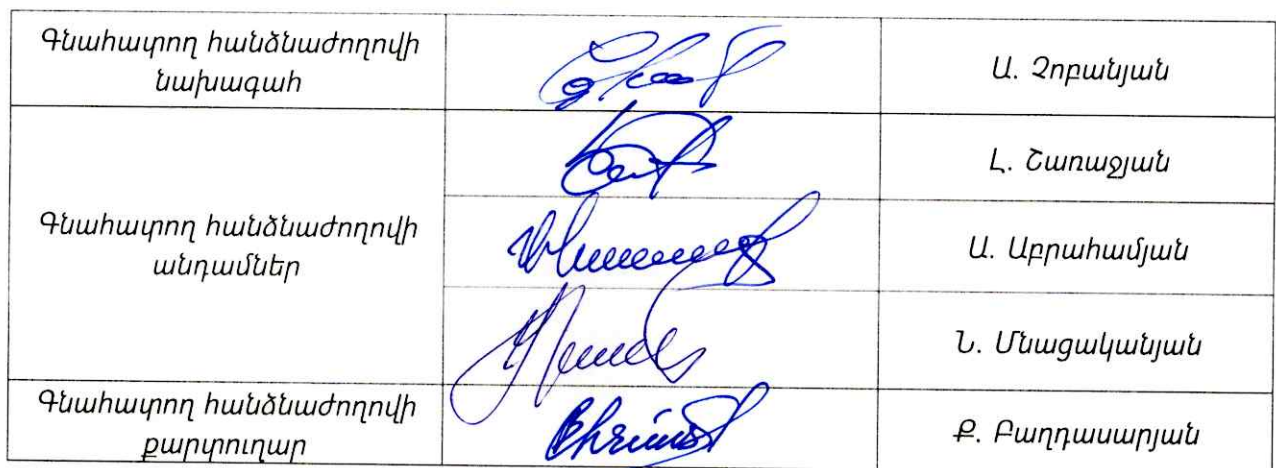 Գնահատող հանձնաժողովի
նախագահ
Ա. Չոբանյան
Լ. Շառաջյան
Գնահատող հանձնաժողովի
անդամներ
Ա. Աբրահամյան
Ն. Մնացականյան
Գնահատող հանձնաժողովի
քարտուղար
Ք. Բաղդասարյան